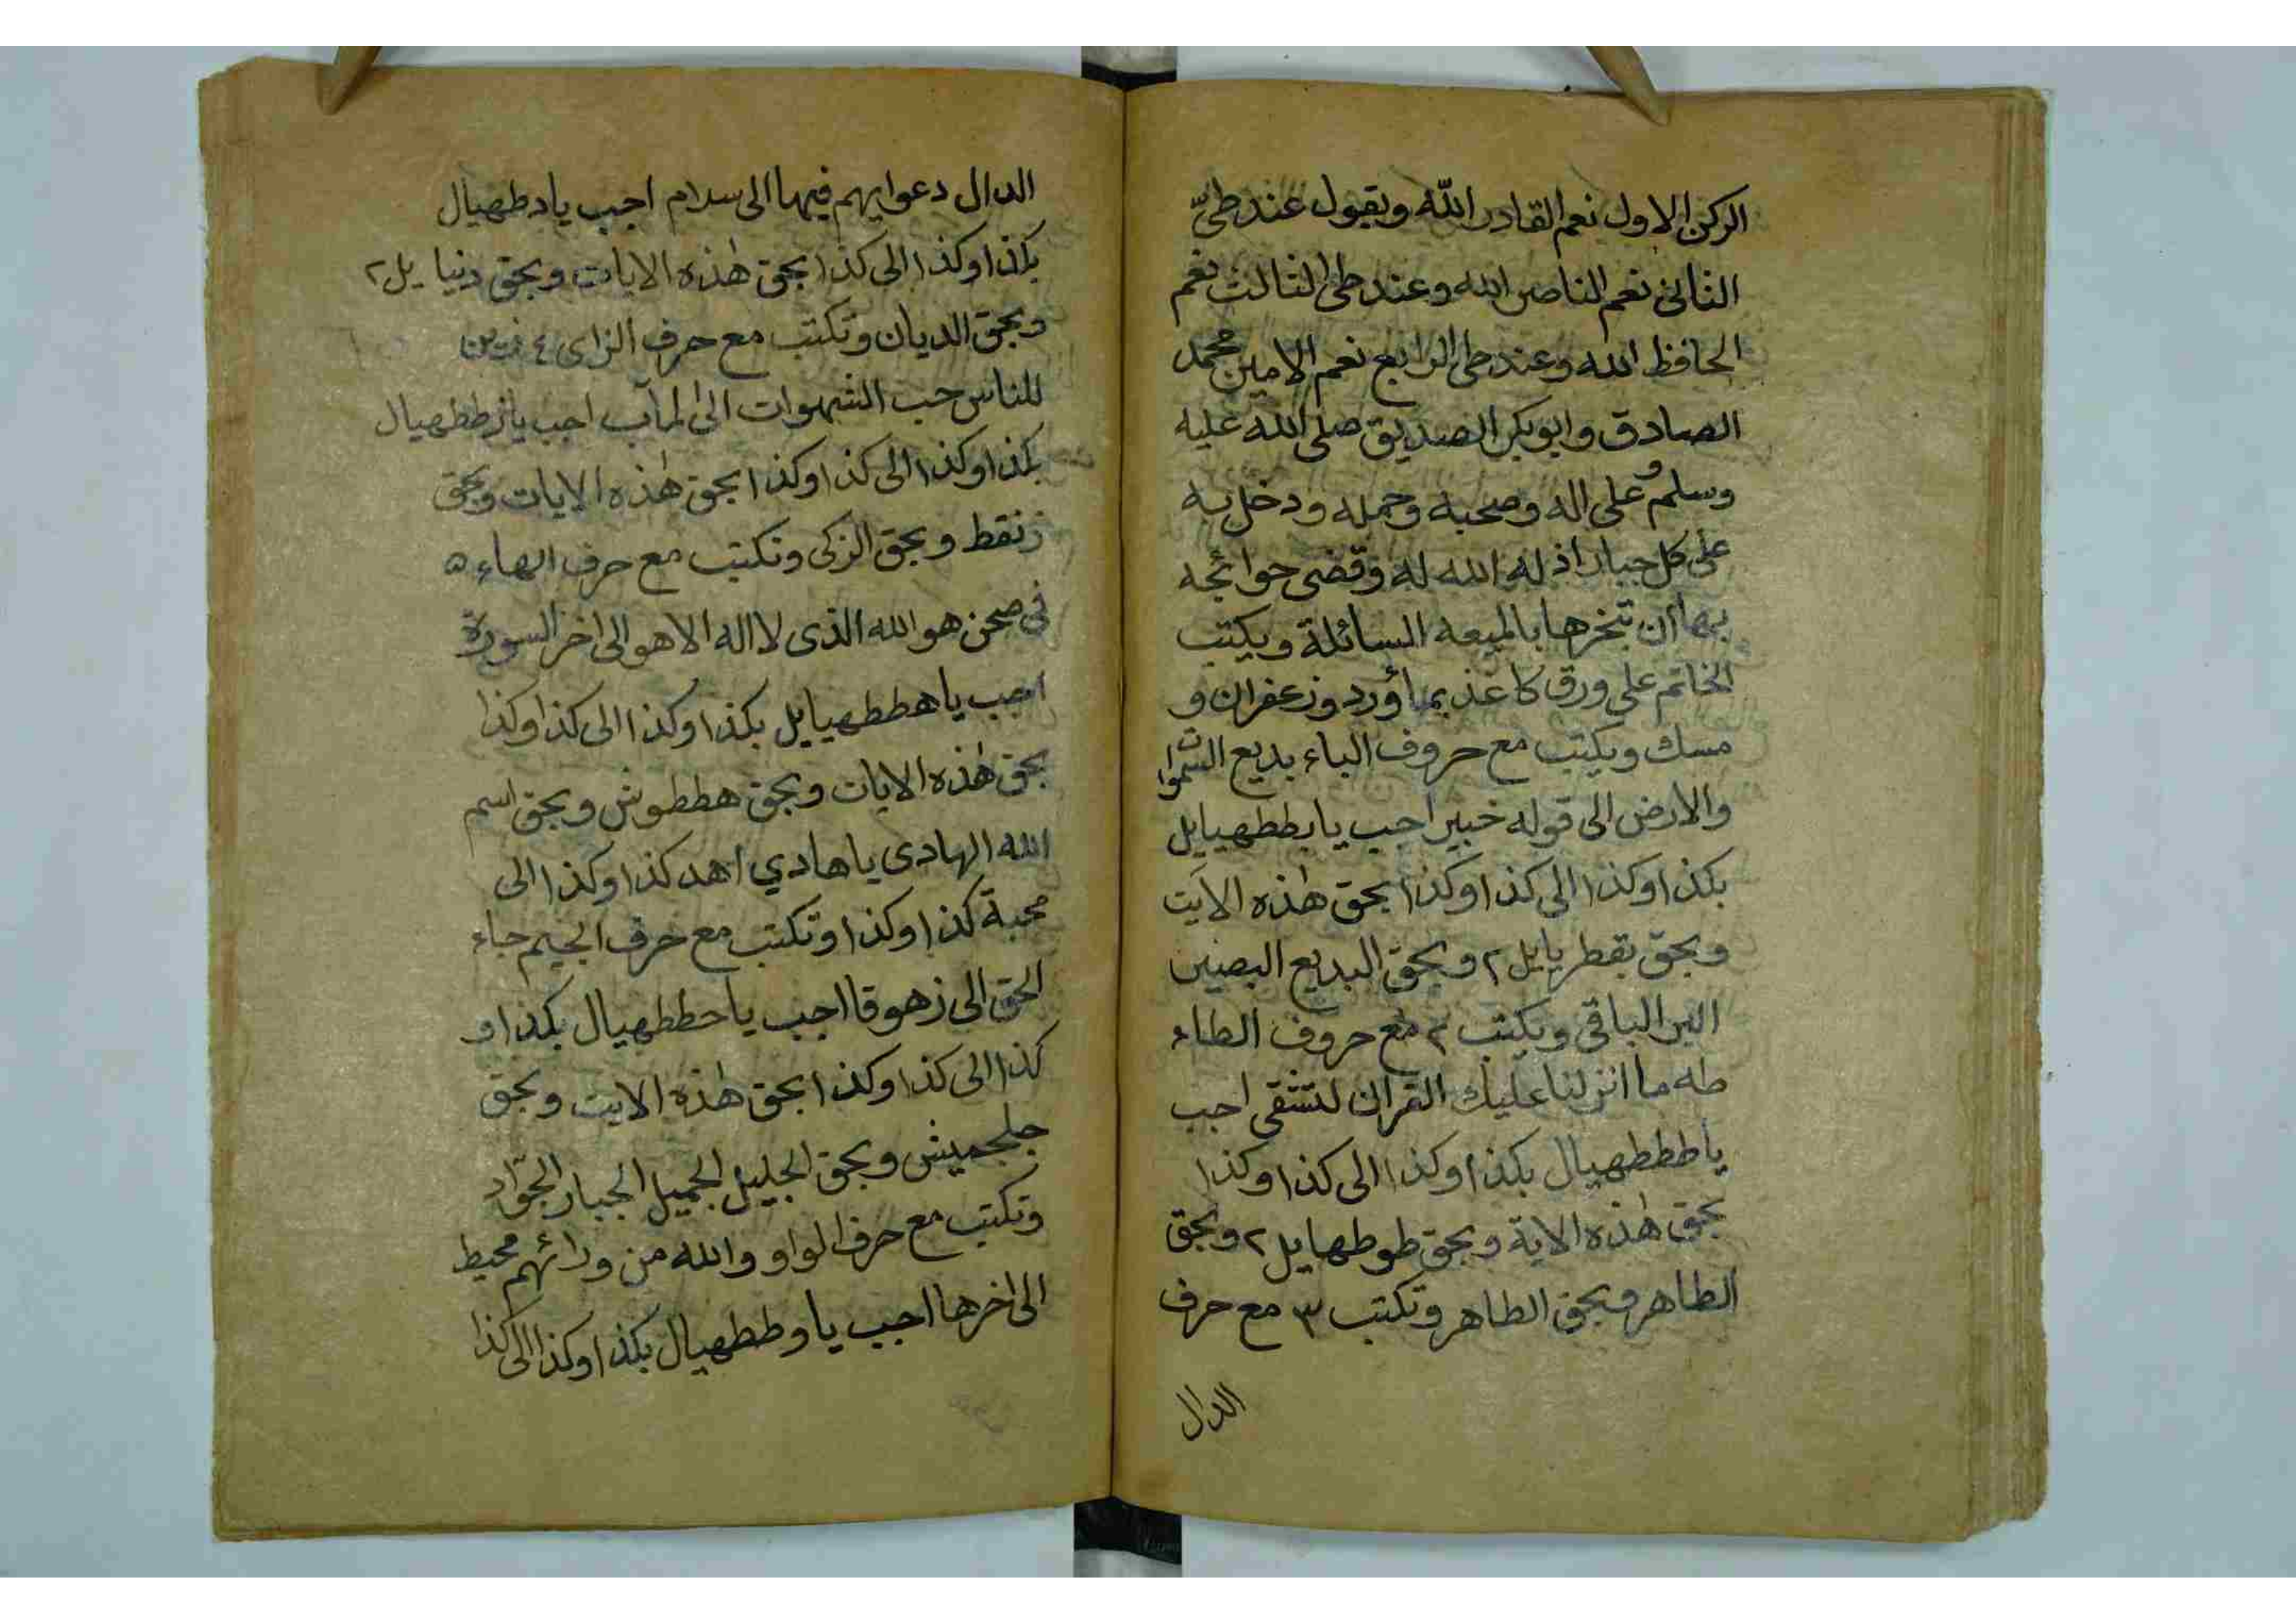 الركن الاول نعم القادر الله ويقول عند طىّ
الثانى نعم الناصر الله وعند طى الثالث نعم
الحافظ الله وعند طى الرابع نعم الامين محمد
الصادق وابو بكر الصديق صلى الله عليه
وسلم وعلى اله وصحبه وحمله ودخل به
على كل جبار اذله الله له وقضى حوائجه
بها ان تبخرها بالميعه السائلة ويكتب
الخاتم على ورق كاغذ بمأورد وزعفران و
مسك ويكتب مع حروف الباء بديع السموات
والارض الى قوله خبير احب يا بططهيايل
بكذا وكذا الى كذا وكذا بحق هٰذه الايت
وبحق بقطريايل ٢ وبحق البديع البصير
البر الباقى ويكتب ٢ مع حروف الطاء
طه ما انزلنا عليك القران لتشقى اجب
يا طططهيال بكذا وكذا الى كذا وكذا
بحق هٰذه الاية وبحق طوطهايل ٢ وبحق
الطاهر وبحق الطاهر وتكتب ٣ مع حرف
الدال
الدال دعوايهم فيها الى سلام اجب ياد طهيال
بكذا وكذا الى كذا بحق هٰذه الايات وبحق دنيا يل ٢
وبحق الديان وتكتب مع حرف الزاى ٤ زين
للناس حب الشهوات الى المآب اجب يا زططهيال
بكذا وكذا الى كذا وكذا بحق هٰذه الايات وبحق
زنقط وبحق الزكى وتكتب مع حرف الهاء ٥
فى صحن هو الله الذى لا اله الا هو الى اخر السورة
اجب يا هططهيايل بكذا وكذا الى كذا وكذا
بحق هٰذه الايات وبحق هططوش وبحق اسم
الله الهادى يا هادي اهد كذا وكذا الى
محبة كذا وكذا وتكتب مع حرف الجيم جاء
الحق الى زهوقا اجب يا حططهيال بكذا و
كذا الى كذا وكذا بحق هٰذه الايت وبحق
جلجميش وبحق الجليل الجميل الجبار الجوّاد
وتكتب مع حرف الواو والله من ورائهم محيط
الى اخرها اجب يا وططهيال بكذا وكذا الى كذا